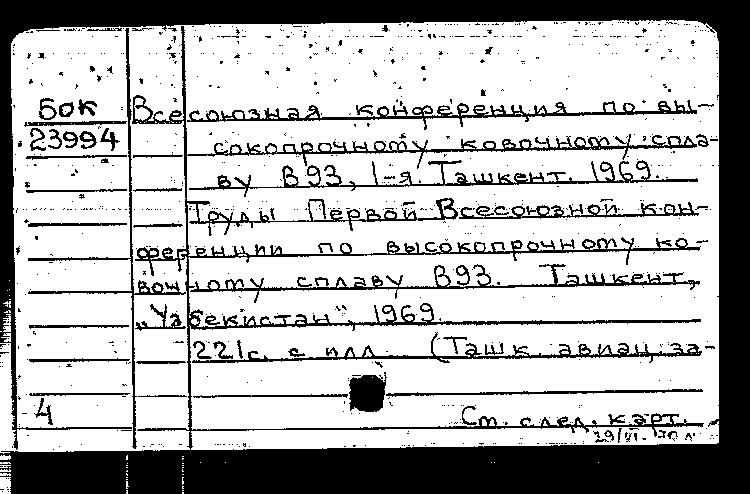 Бок Всесоюзная конференция по вы-
23994 сокопрочному ковочному спла-
ву В93, 1-я. Ташкент. 1969.
Труды Первой Всесоюзной кон-
ференции по высокопрочному ко-
вочному сплаву В93. Ташкент,
„Узбекистан", 1969.
221с. с илл. (Ташк. авиац. за-
4
См. след. карт.
29/VI-70 л